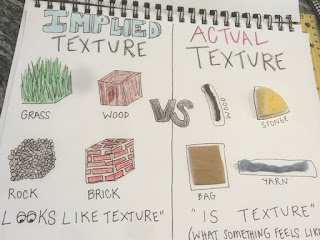 IMPLIED
TEXTURE
GRASS
WOOD
ROCK
BRICK
LOOKS LIKE TEXTURE"
VS
ACTUAL
TEXTURE
WOOD
SPONGE
BAG
YARN
"IS TEXTURE"
(WHAT SOMETHING FEELS LIKE